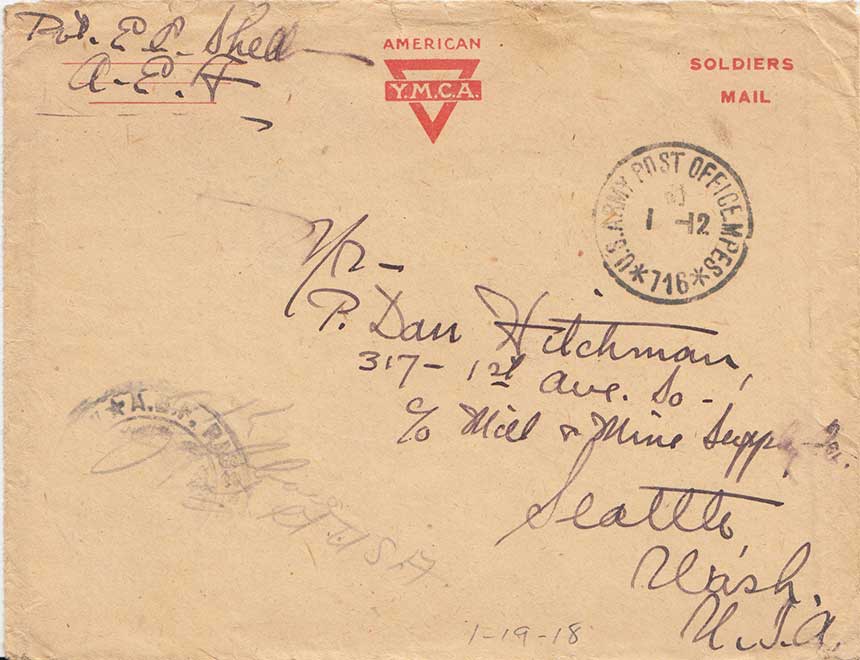 Pvt. E. P. Shea
A. E. F
AMERICAN
Y.M.C.A.
SOLDIERS
MAIL
U.S. ARMY POST OFFICE M.P.E.S. *716*
1 -12
Mr-
P. Dan Hitchman,
317- 1st Ave. So-
c/o Mill & Mine Supply Co.
Seattle
Wash.
U.S.A.
* A.E.F.
U S A
1-19-18